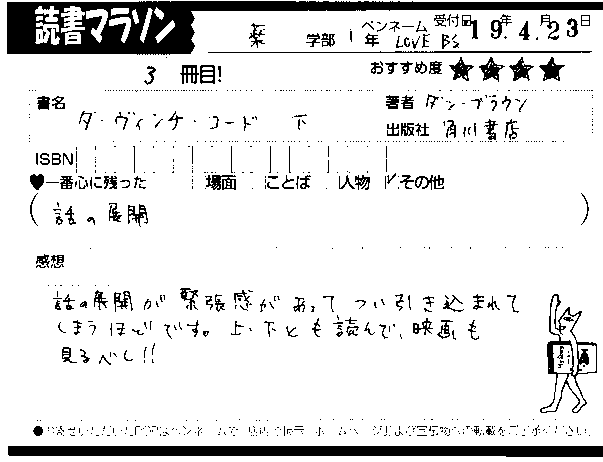 読書マラソン
薬 学部 1 年 ペンネーム LOVE BS 受付日 19年 4月 23日
3 冊目!
おすすめ度 ★★★★
書名 ダ・ヴィンチ・コード 下
著者 ダン・ブラウン
出版社 角川書店
ISBN
♥一番心に残った 場面 ことば 人物 ✓その他
(話の展開)
感想
話の展開が緊張感があってつい引き込まれて
しまうほどです。上・下とも読んで、映画も
見るべし!!
●お寄せいただいたPOPはペンネームで